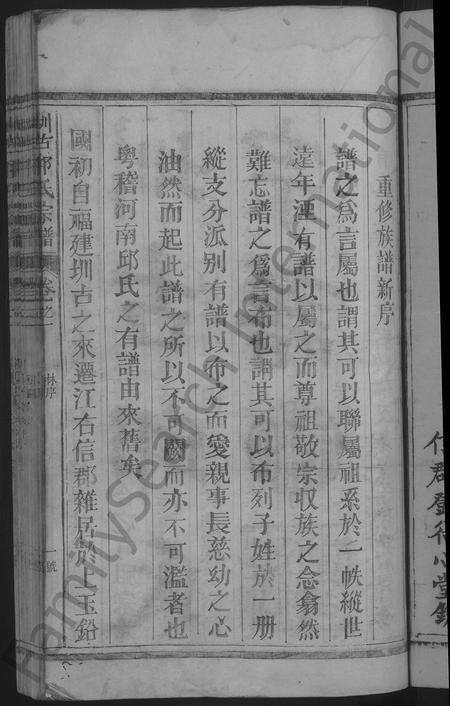 重修族譜新序
譜之爲言屬也謂其可以聯屬祖系於一帙縱世
遠年湮有譜以屬之而尊祖敬宗収族之念翕然
難忘譜之爲言布也謂其可以布列子姓於一册
縱支分派別有譜以布之而愛親事長慈幼之心
油然而起此譜之所以不可闕而亦不可濫者也
粤稽河南邱氏之有譜由來舊矣
國初自福建圳古之來遷江右信郡雜居於上玉鉛
圳古邱氏宗譜 卷之一
林序
一號
FamilySearch International